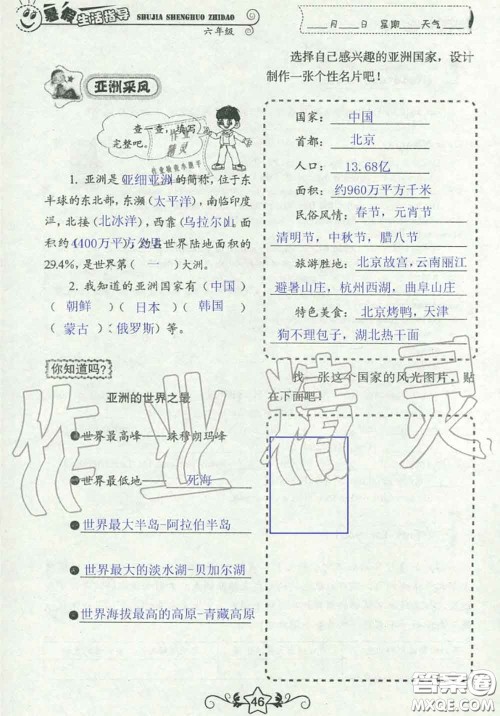 暑假生活指导
SHUJIA SHENGHUO ZHIDAO
六年级
月 日 星期 天气
亚洲采风
查一查，填写
完整吧。
1. 亚洲是亚细亚洲的简称，位于东
半球的东北部，东濒（太平洋），南临印度
洋，北接（北冰洋），西靠（乌拉尔山），面
积约（4400万平方公里），约占世界陆地面积的
29.4%，是世界第（一）大洲。
2. 我知道的亚洲国家有（中国）
（朝鲜）（日本）（韩国）
（蒙古）（俄罗斯）等。
你知道吗?
亚洲的世界之最
世界最高峰——珠穆朗玛峰
世界最低地——死海
世界最大半岛-阿拉伯半岛
世界最大的淡水湖-贝加尔湖
世界海拔最高的高原-青藏高原
选择自己感兴趣的亚洲国家，设计
制作一张个性名片吧！
国家：中国
首都：北京
人口：13.68亿
面积：约960万平方千米
民俗风情：春节，元宵节
清明节，中秋节，腊八节
旅游胜地：北京故宫,云南丽江
避暑山庄，杭州西湖，曲阜山庄
特色美食：北京烤鸭，天津
狗不理包子，湖北热干面
找一张这个国家的风光图片，贴
在下面吧！
作业精灵
46
答案圈
MXQE.COM